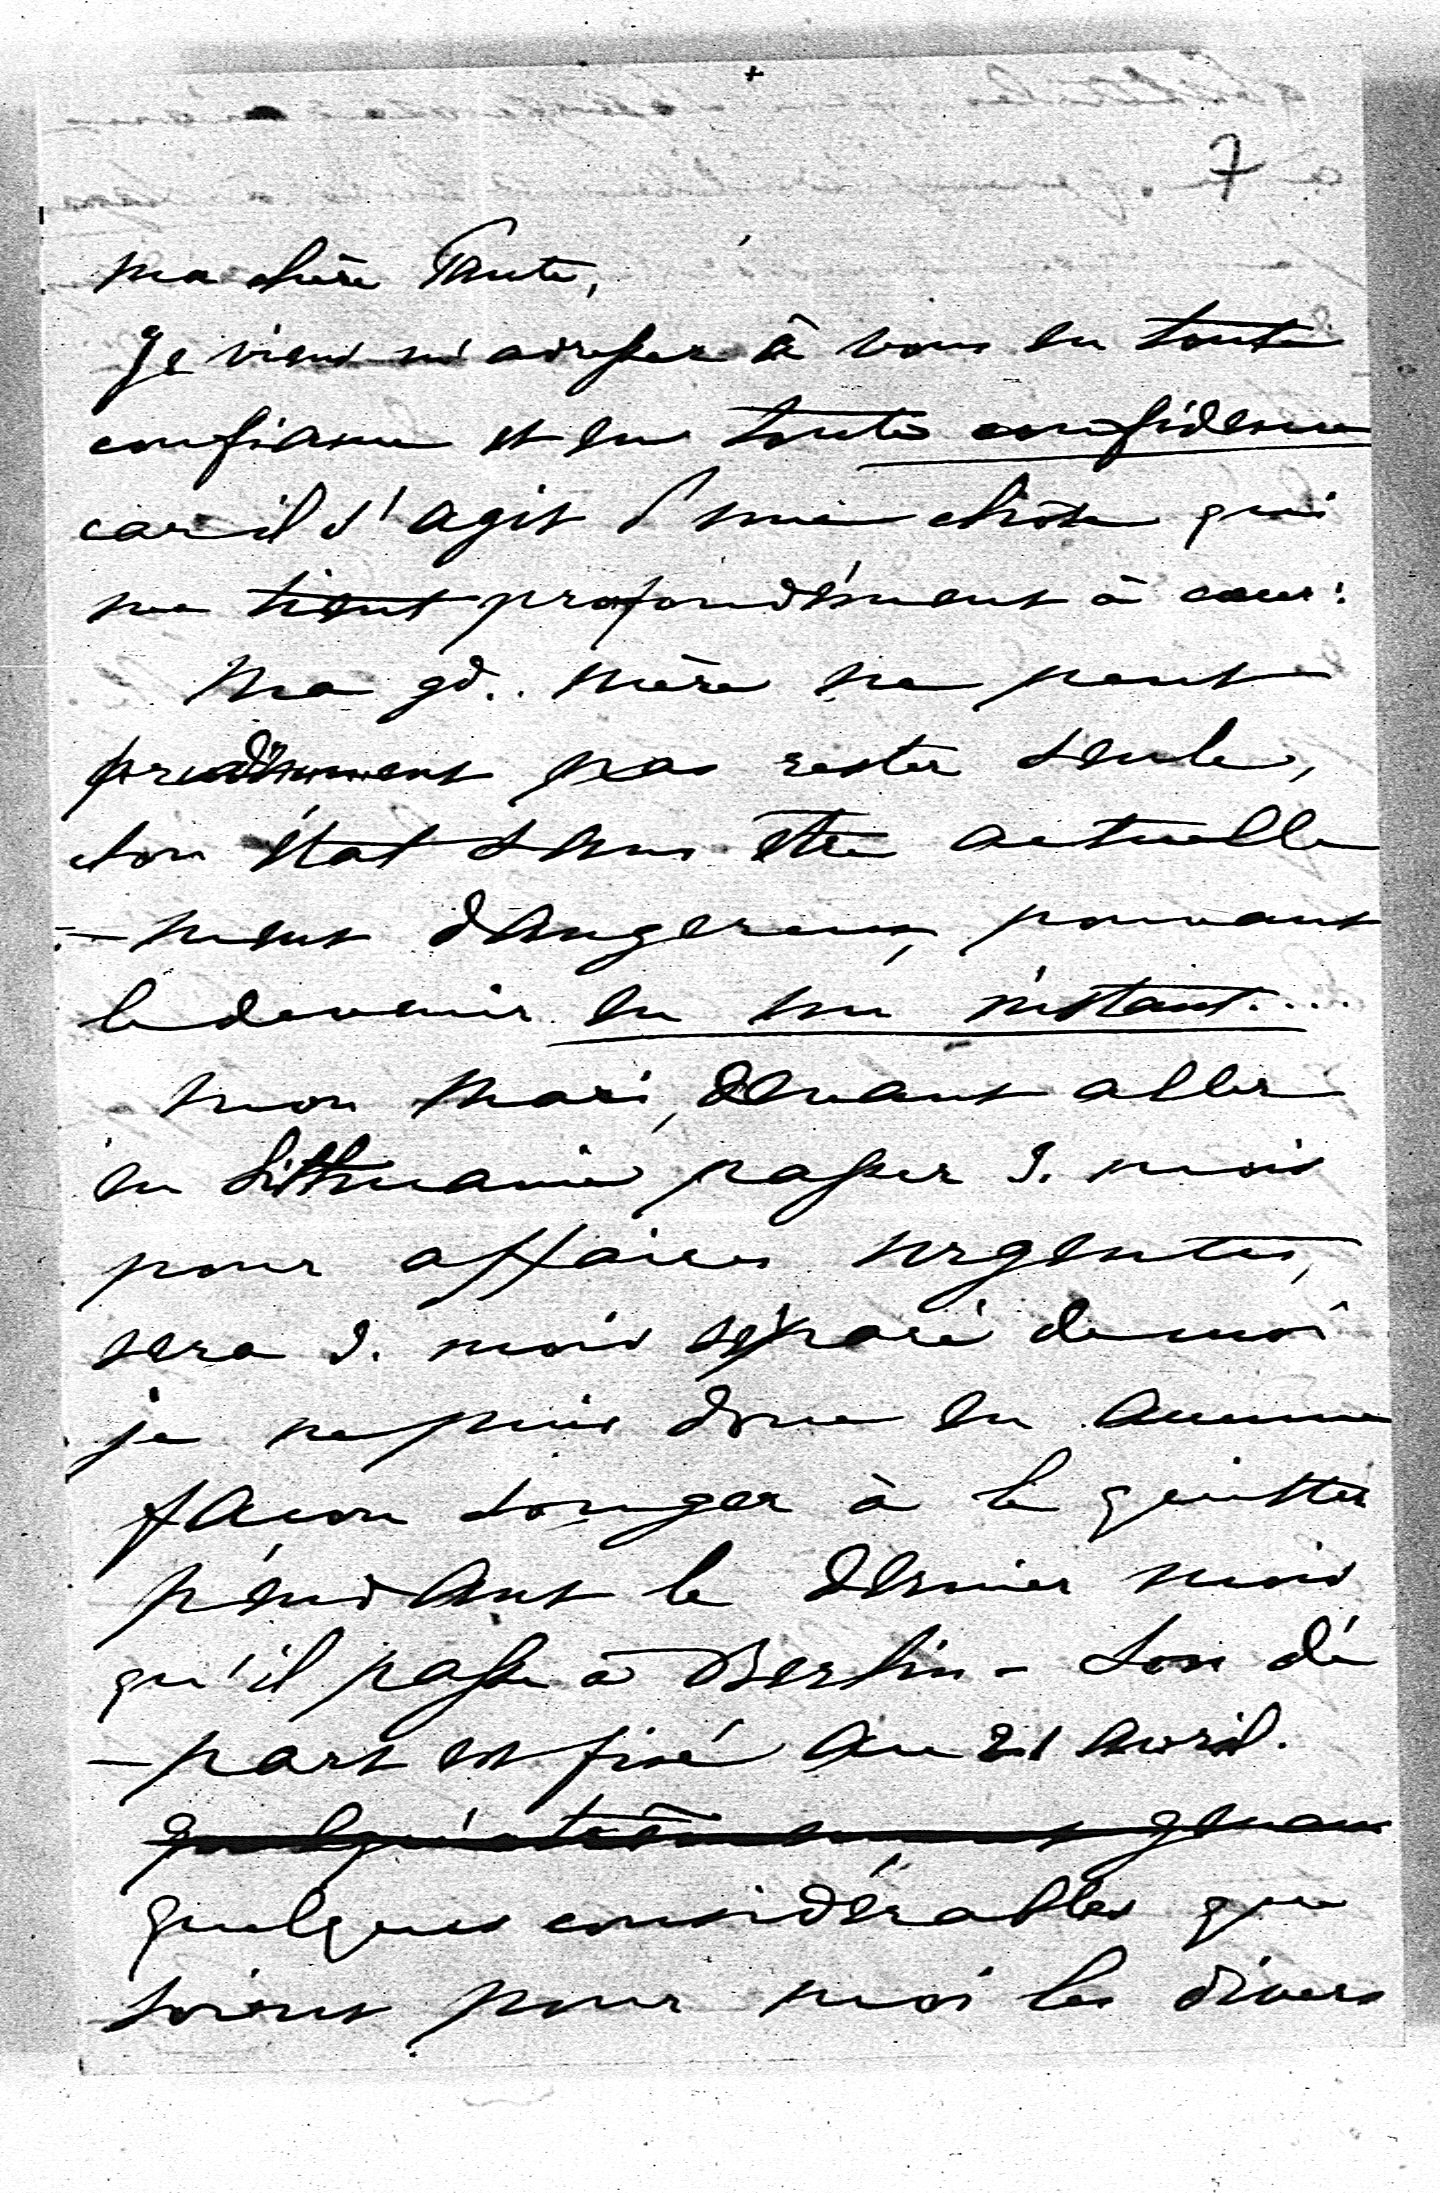 7
Ma chère Tante,
Je viens m'adresser à vous en toute
confiance et en toute confidence
car il s'agit d'une chose qui
me tient profondément à cœur:
Ma gd.. mère ne peut
prudemment pas rester seule,
son état sans être actuelle
- ment dangereux, pouvant
le devenir en un instant....
Mon mari, devant aller
en Lithuanie passer 3. mois
pour affaires urgentes,
sera 3. mois séparé de moi
je ne puis donc en aucune
façon songer à le quitter
pendant le dernier mois
qu'il passe à Berlin - Son dé
- part est fixé au 21 avril.
quelques considérables que
soient pour moi les divers